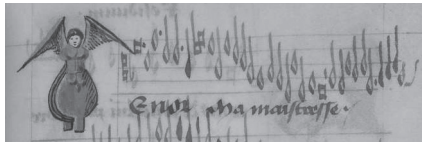 Tenor Ma maistresse.